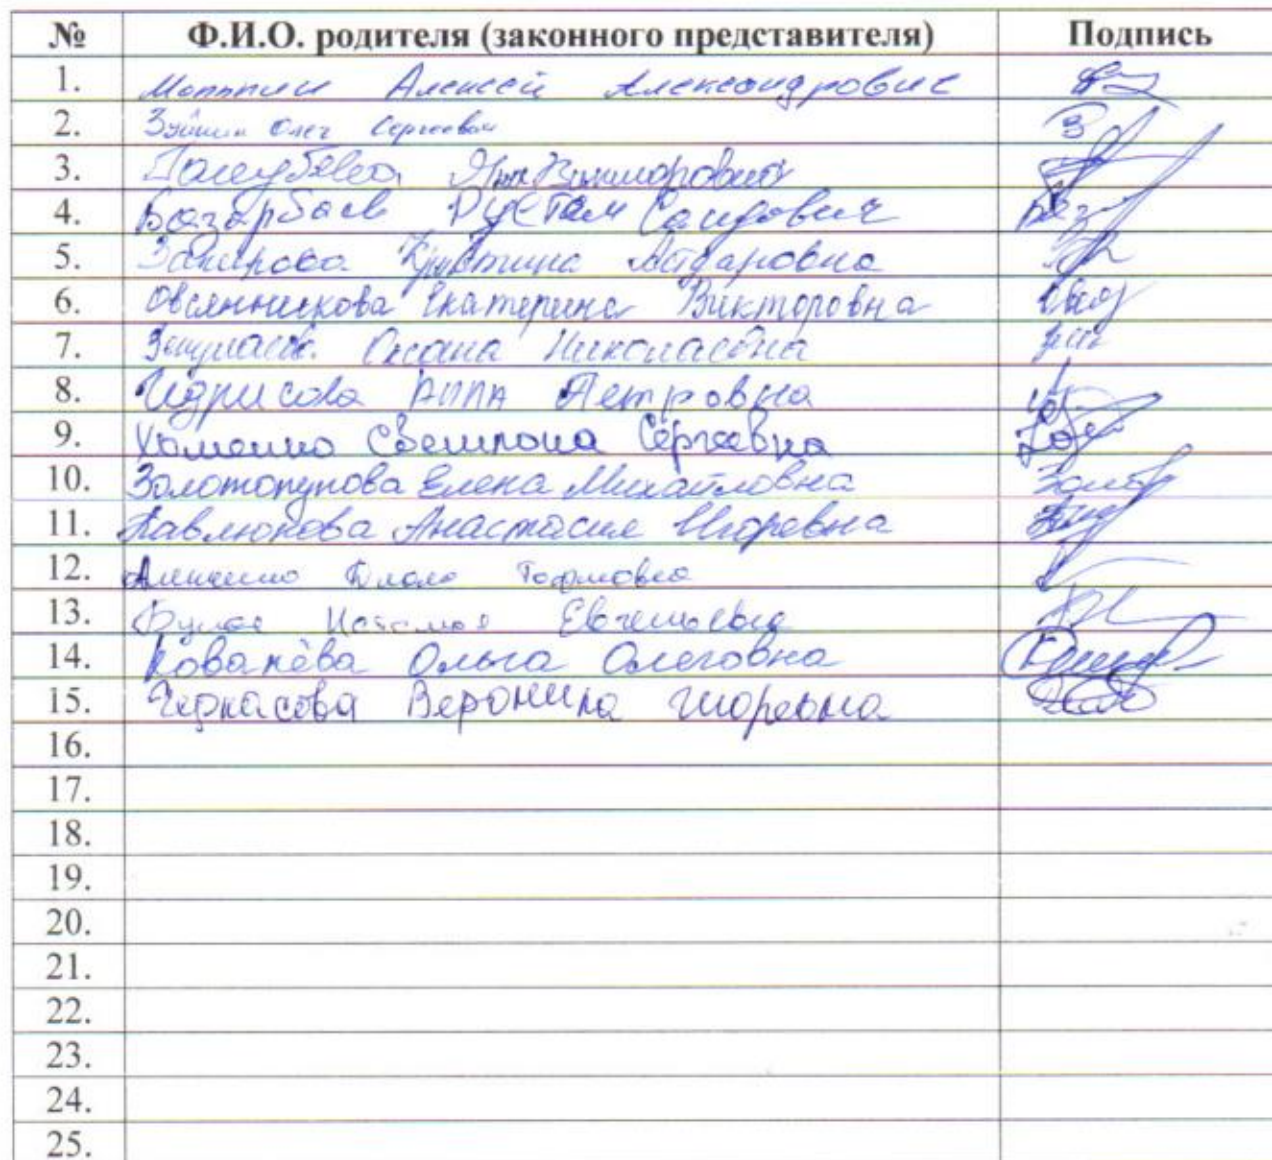 № Ф.И.О. родителя (законного представителя) Подпись
1. Алексей Александрович
2. Олег Сергеевич
3. Викторович
4. Базарбаев Рустам Саидович
5. Закирова Кристина Айдаровна
6. Овсянникова Екатерина Викторовна
7. Оксана Николаевна
8. Идрисова Анна Петровна
9. Хоменко Светлана Сергеевна
10. Золотопупова Елена Михайловна
11. Павлюкова Анастасия Игоревна
12.
13. Евгеньевна
14. Ковалёва Ольга Олеговна
15. Черкасова Вероника Игоревна
16.
17.
18.
19.
20.
21.
22.
23.
24.
25.